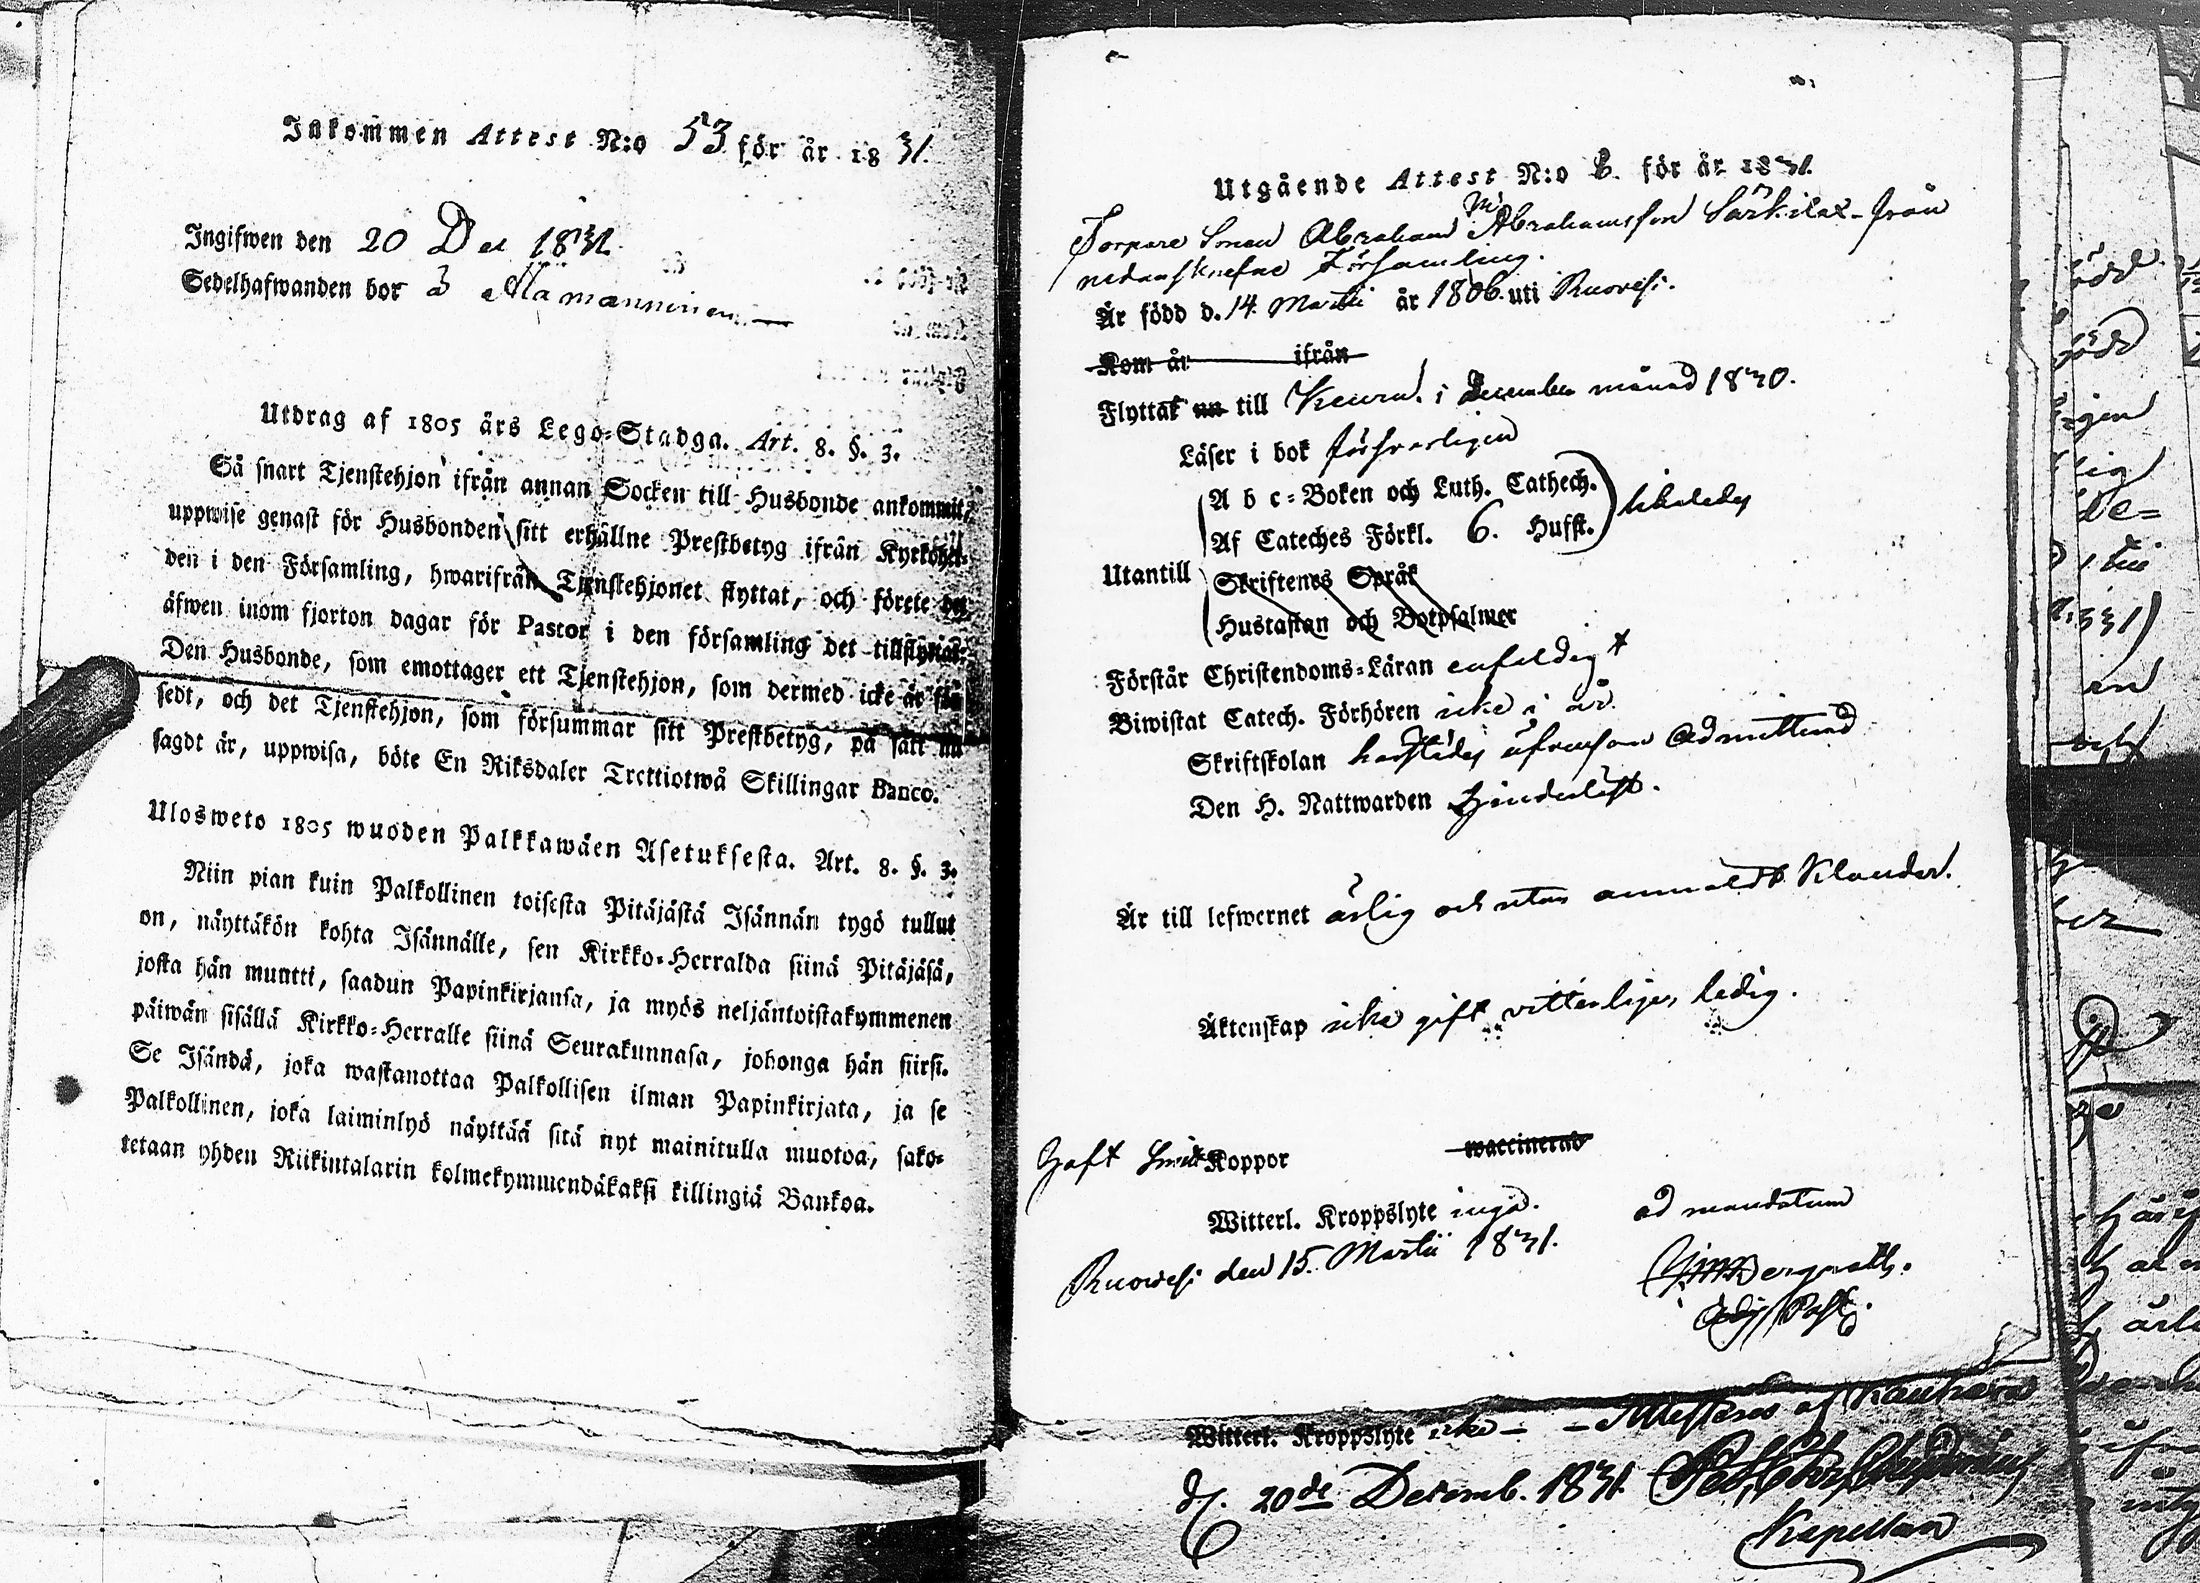 Inkommen Attest N:o 53 för år 1831.
Ingifwen den 20 Dec 1831
Sedelhafwanden bor å Mamanninen
Utdrag af 1805 års Lego-Stadga. Art. 8. §. 3.
Så snart Tjenstehjon ifrån annan Socken till Husbonde ankommit,
uppwise genast för Husbonden sitt erhållne Prestbetyg ifrån Kyrkoher-
den i den Församling, hwarifrån Tjenstehjonet flyttat, och förete det
äfwen inom fjorton dagar för Pastor i den församling det tillflyttat.
Den Husbonde, som emottager ett Tjenstehjon, som dermed icke är för-
sedt, och det Tjenstehjon, som försummar sitt Prestbetyg, på sätt nu
sagdt är, uppwisa, böte En Riksdaler Trettiotwå Skillingar Banco.
Ulosweto 1805 wuoden Palkkawäen Asetuksesta. Art. 8. §. 3.
Niin pian kuin Palkollinen toisesta Pitäjästä Isännän tygö tullut
on, näyttäkön kohta Isännälle, sen Kirkko-Herralda siinä Pitäjäsä,
josta hän muutti, saadun Papinkirjansa, ja myös neljäntoistakymmenen
päiwän sisällä Kirkko-Herralle siinä Seurakunnasa, johonga hän siirsi.
Se Isändä, joka wastanottaa Palkollisen ilman Papinkirjata, ja se
Palkollinen, joka laiminlyö näyttää sitä nyt mainitulla muotoa, sako-
tetaan yhden Riikintalarin kolmekymmendäkaksi killingiä Bankoa.
Utgående Attest N:o 6. för år 1831.
Torpare Sonen Abraham Abrahamsson Särkilax från
nedanskrefne Församling.
Är född d. 14 Martii år 1806. uti Ruovesi.
Kom år ifrån
Flyttat nu till Keuru i December månad 1830.
Läser i bok försvarligen
A b c-Boken och Luth. Cathech.
Af Cateches Förkl. 6. Hufst. likaledes
Utantill
Skriftenes Språk
Hustaflan och Botpsalmer
Förstår Christendoms-Läran enfaldigt
Biwistat Catech. Förhören icke i år.
Skriftskolan harstädes äfvensom Admitterad
Den H. Nattwarden Hinderlöst.
Är till lefwernet ärlig och utan anmäldt Klander.
Äktenskap icke gift vitterligen, ledig.
Haft Smitt Koppor waccinerad
Witterl. Kroppslyte inga.
ad mandatum
Ruowesi den 15. Martii 1831.
Adj Past.
Witterl. Kroppslyte icke – – Attesteras af
d. 20de Decemb. 1831.
Kapellan